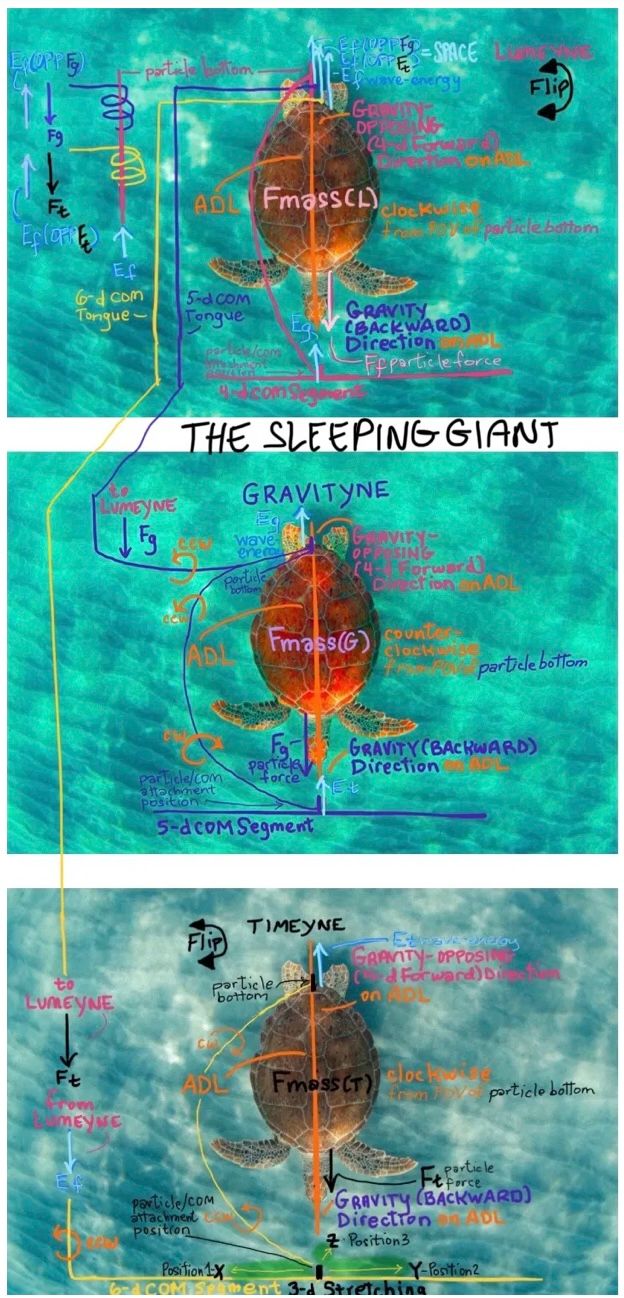 Ef(OPP Fg)
Fg
Ft
Ef(OPP Et)
particle bottom
Ef
6-d COM
Tongue
5-d COM
Tongue
Ef(OPP Fg)
Ef(OPP Et) = SPACE
Ef wave-energy
LUMEYNE
Flip
GRAVITY-
OPPOSING
(4-d Forward)
Direction on ADL
ADL
Fmass(L)
clockwise
from POV of particle bottom
Eg
GRAVITY
(BACKWARD)
Direction on ADL
Ff particle force
particle/com
attachment
position
4-d COM Segment
THE SLEEPING GIANT
to
LUMEYNE
Fg
GRAVITYNE
Eg
wave-
energy
particle
bottom
CCW
CCW
GRAVITY-
OPPOSING
(4-d Forward)
Direction on ADL
ADL
Fmass(G)
counter-
clockwise
from POV of particle bottom
CW
Fg
particle
force
GRAVITY (BACKWARD)
Direction on ADL
particle/COM
attachment
position
Et
5-d COM Segment
Flip
TIMEYNE
Et wave-energy
GRAVITY-OPPOSING
(4-d Forward) Direction
on ADL
particle
bottom
to
LUMEYNE
Ft
from
LUMEYNE
Ef
CCW
CW
ADL
Fmass(T)
clockwise
from POV of particle bottom
Ft particle
force
GRAVITY (BACKWARD)
Direction on ADL
particle/COM
attachment
position
CCW
Z-Position3
Position1-X
Y-Position2
6-d COM Segment 3-d Stretching